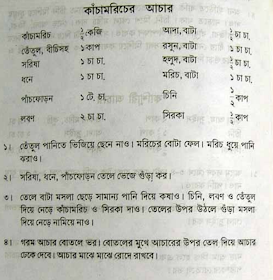 কাঁচামরিচের আচার
কাঁচামরিচ ½ কেজি আদা, বাটা ½ চা চা.
তেঁতুল, বীচিসহ ১ কাপ রসুন, বাটা ১ চা চা.
সরিষা ১ চা চা. হলুদ, বাটা ½ চা চা.
ধনে ১ চা চা. মরিচ, বাটা ১ চা চা.
পাঁচফোড়ন ১ টে. চা. চিনি কাপ
লবণ ২ চা চা. সিরকা কাপ
১। তেঁতুল পানিতে ভিজিয়ে ছেনে নাও। মরিচের বোটা ফেল। মরিচ ধুয়ে পানি
ঝরাও।
২। সরিষা, ধনে, পাঁচফোড়ন তেলে ভেজে গুঁড়া কর।
৩। তেলে বাটা মসলা ছেড়ে সামান্য পানি দিয়ে কষাও। চিনি, লবণ ও তেঁতুল
দিয়ে নেড়ে কাঁচামরিচ ও সিরকা দাও। তেলের উপর উঠলে গুঁড়া মসলা
দিয়ে নেড়ে নামিয়ে নাও।
৪। গরম আচার বোতলে ভর। বোতলের মুখে আচারের উপর তেল দিয়ে আচার
ঢেকে দেবে। আচার মাঝে মাঝে রোদে রাখবে।